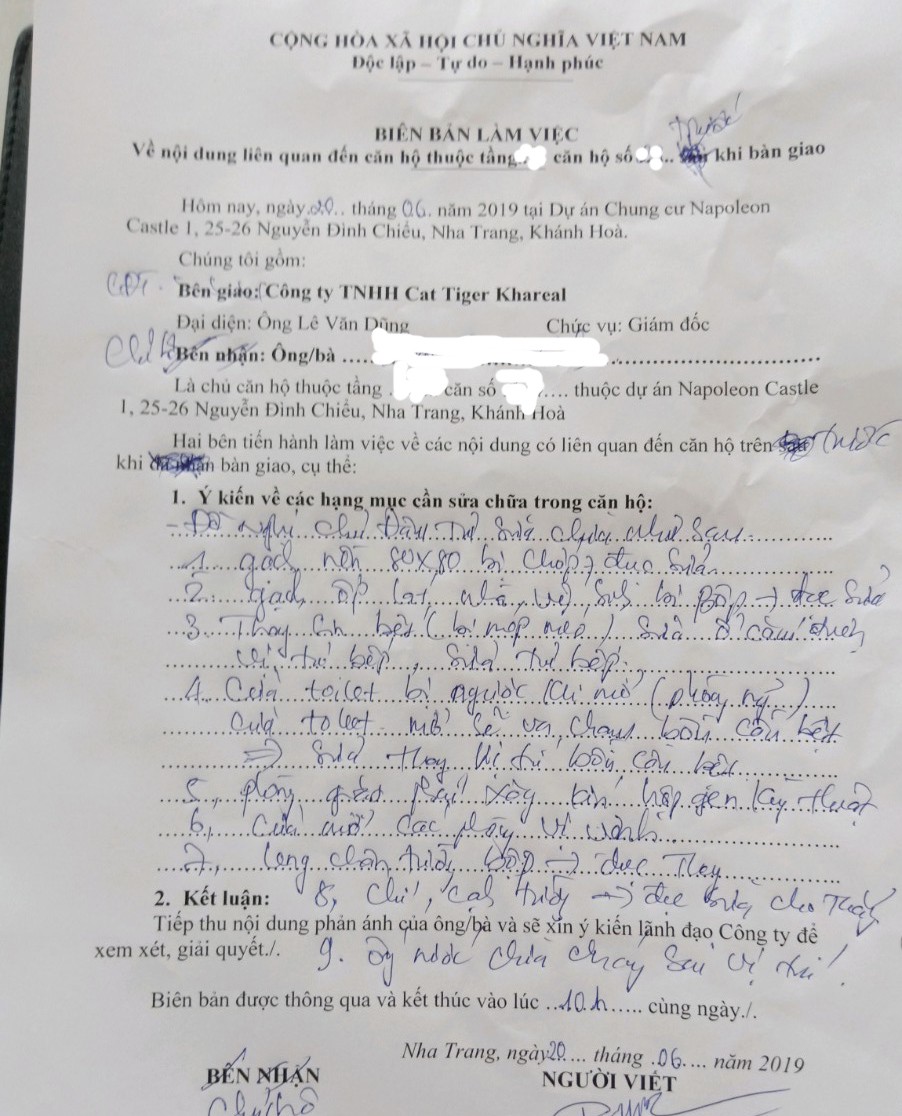 CỘNG HÒA XÃ HỘI CHỦ NGHĨA VIỆT NAM
Độc lập – Tự do – Hạnh phúc
BIÊN BẢN LÀM VIỆC
trước
Về nội dung liên quan đến căn hộ thuộc tầng căn hộ số khi bàn giao
Hôm nay, ngày 20 tháng 06 năm 2019 tại Dự án Chung cư Napoleon
Castle 1, 25-26 Nguyễn Đình Chiểu, Nha Trang, Khánh Hoà.
Chúng tôi gồm:
CĐT Bên giao: Công ty TNHH Cat Tiger Khareal
Đại diện: Ông Lê Văn Dũng Chức vụ: Giám đốc
Chủ hộ Bên nhận: Ông/bà
Là chủ căn hộ thuộc tầng căn số thuộc dự án Napoleon Castle
1, 25-26 Nguyễn Đình Chiểu, Nha Trang, Khánh Hoà
Hai bên tiến hành làm việc về các nội dung có liên quan đến căn hộ trên trước
khi bàn giao, cụ thể:
1. Ý kiến về các hạng mục cần sửa chữa trong căn hộ:
- Đề nghị chủ Đầu tư sửa chữa như sau
1. gạch nền 80x80 bị → đục sửa
2. gạch ốp lát nhà vệ sinh bị bộp → đục sửa
3. Thay bếp (bị móp méo) sửa ổ cắm
vị trí bếp, sửa tủ bếp.
4. Cửa toilet bị ngược khi mở (phòng ngủ)
cửa mở sẽ va chạm bồn cầu bệt
=> sửa thay vị trí bồn cầu bệt
5, phòng phải xây kín hộp gen kỹ thuật
6, cửa các phòng
7, chân tường bộp → đục Thay
2. Kết luận: 8, chỉ, cạnh tường → đục sửa cho
Tiếp thu nội dung phản ánh của ông/bà và sẽ xin ý kiến lãnh đạo Công ty để
xem xét, giải quyết./. 9. ống nước chữa cháy sai vị trí!
Biên bản được thông qua và kết thúc vào lúc 10h cùng ngày./.
Nha Trang, ngày 20 tháng 06 năm 2019
BÊN NHẬN NGƯỜI VIẾT
Chủ hộ